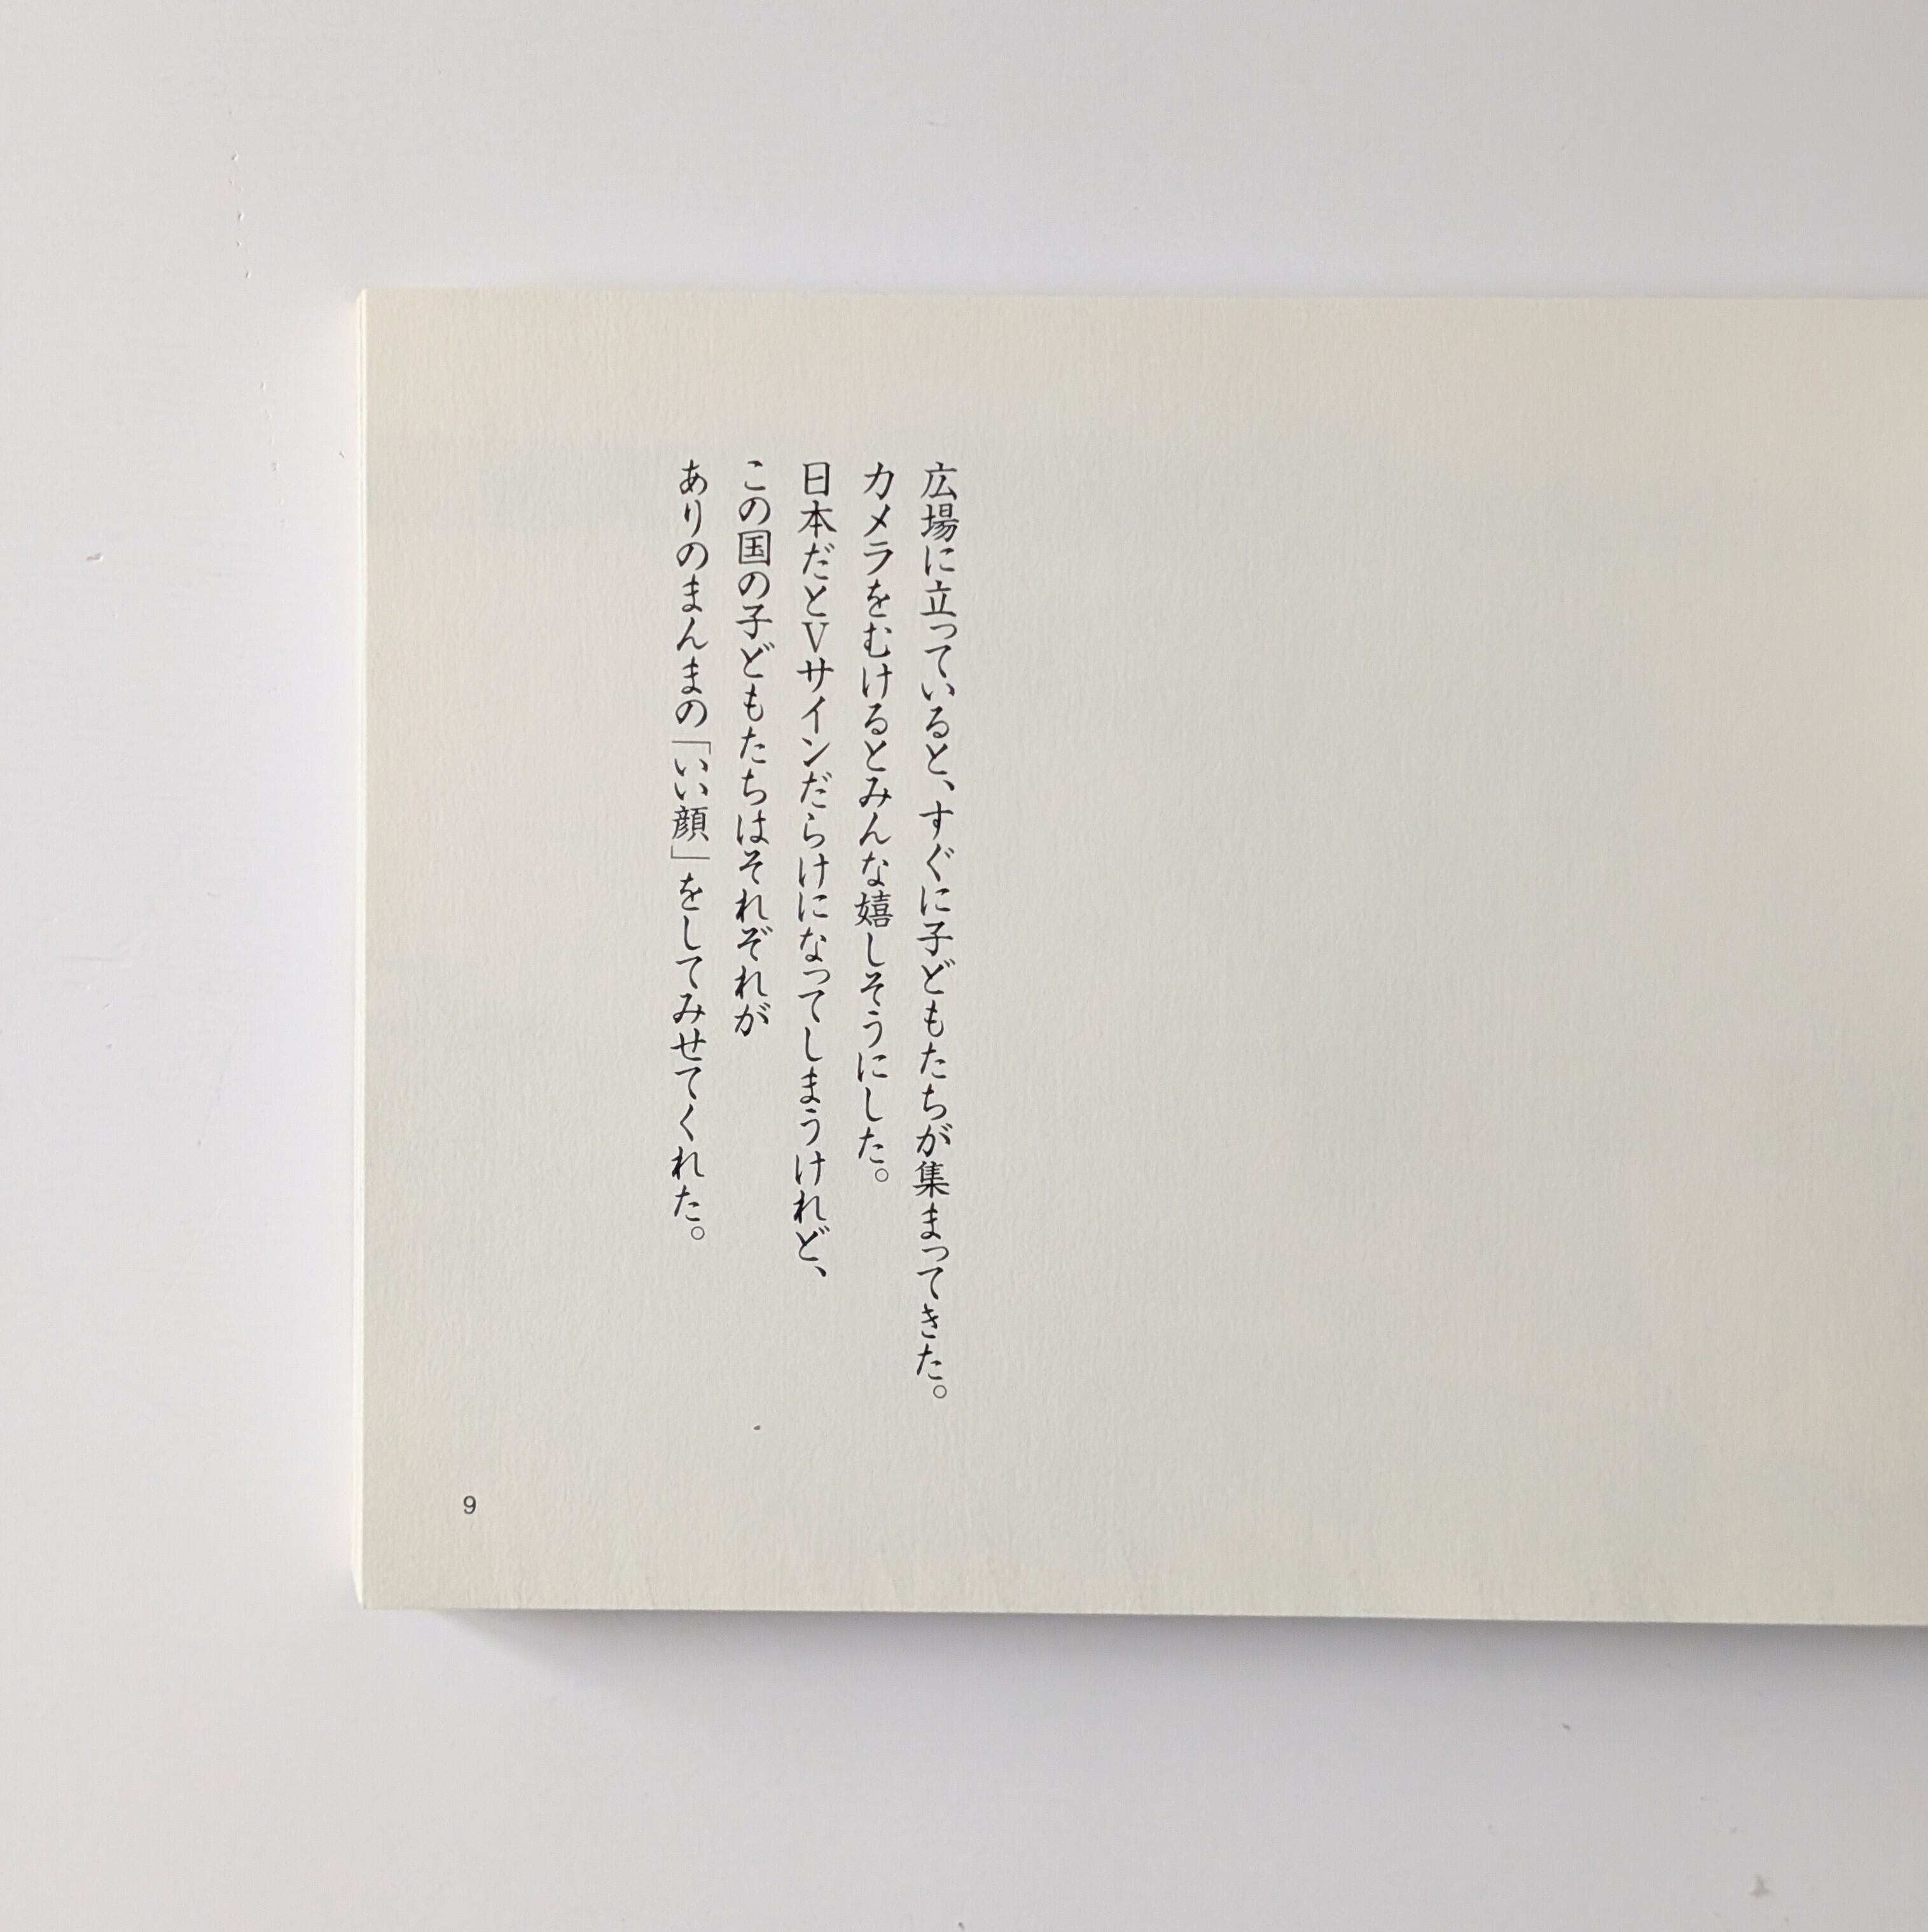 広場に立っていると、すぐに子どもたちが集まってきた。
カメラをむけるとみんな嬉しそうにした。
日本だとVサインだらけになってしまうけれど、
この国の子どもたちはそれぞれが
ありのまんまの「いい顔」をしてみせてくれた。
9